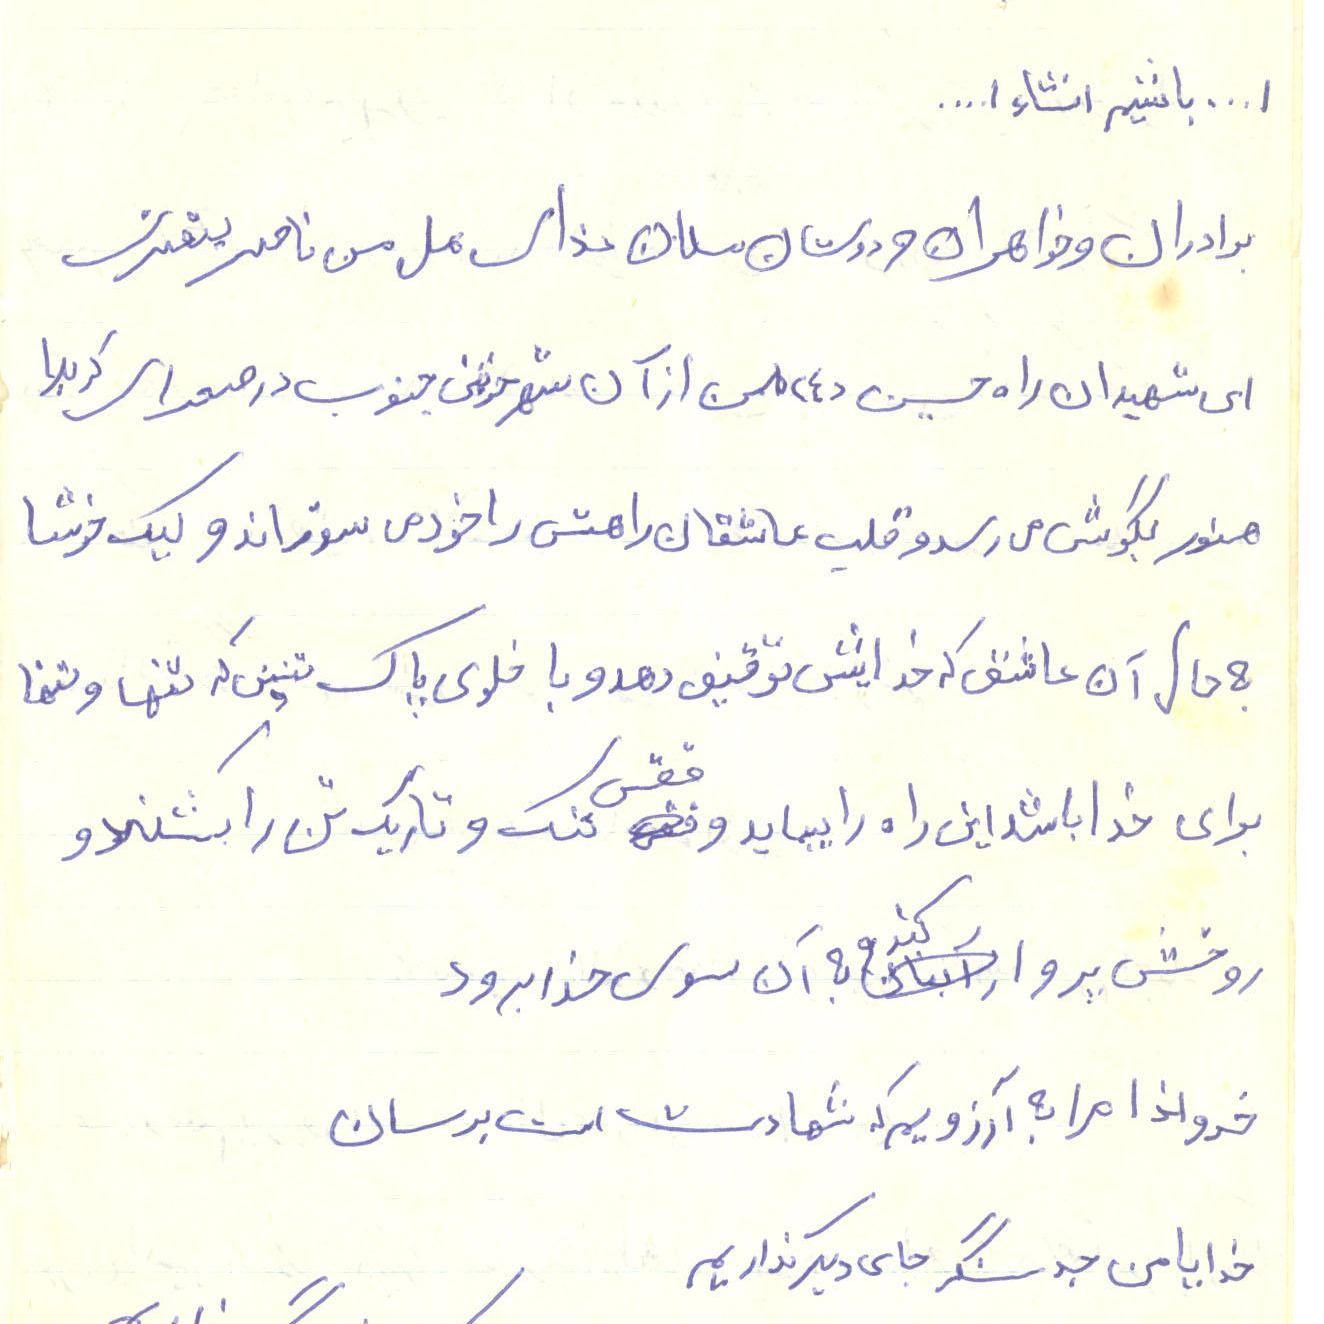 ا.... باشیم انشاء ا....
برادران و خواهران و دوستان مسلمان ندای هل من ناصر ینصرنی
ای شهیدان راه حسین از آن شهر خونین جنوب در صحرای کربلا
هنوز بگوش می رسد و قلب عاشقان راهش را خود می سوزاند و لیک خوشا
به حال آن عاشقی که خدایش توفیق دهد و با خلوی پاک تنپنی که تنها و تنها
برای خدا باشد این راه را بپیماید و قفس تنگ و تاریک تن را بشکند و
روحش پرواز کند و به آن سوی خدا برود
خداوندا مرا به آرزویم که شهادت است برسان
خدایا من جز سنگر جای دیگر نداریم